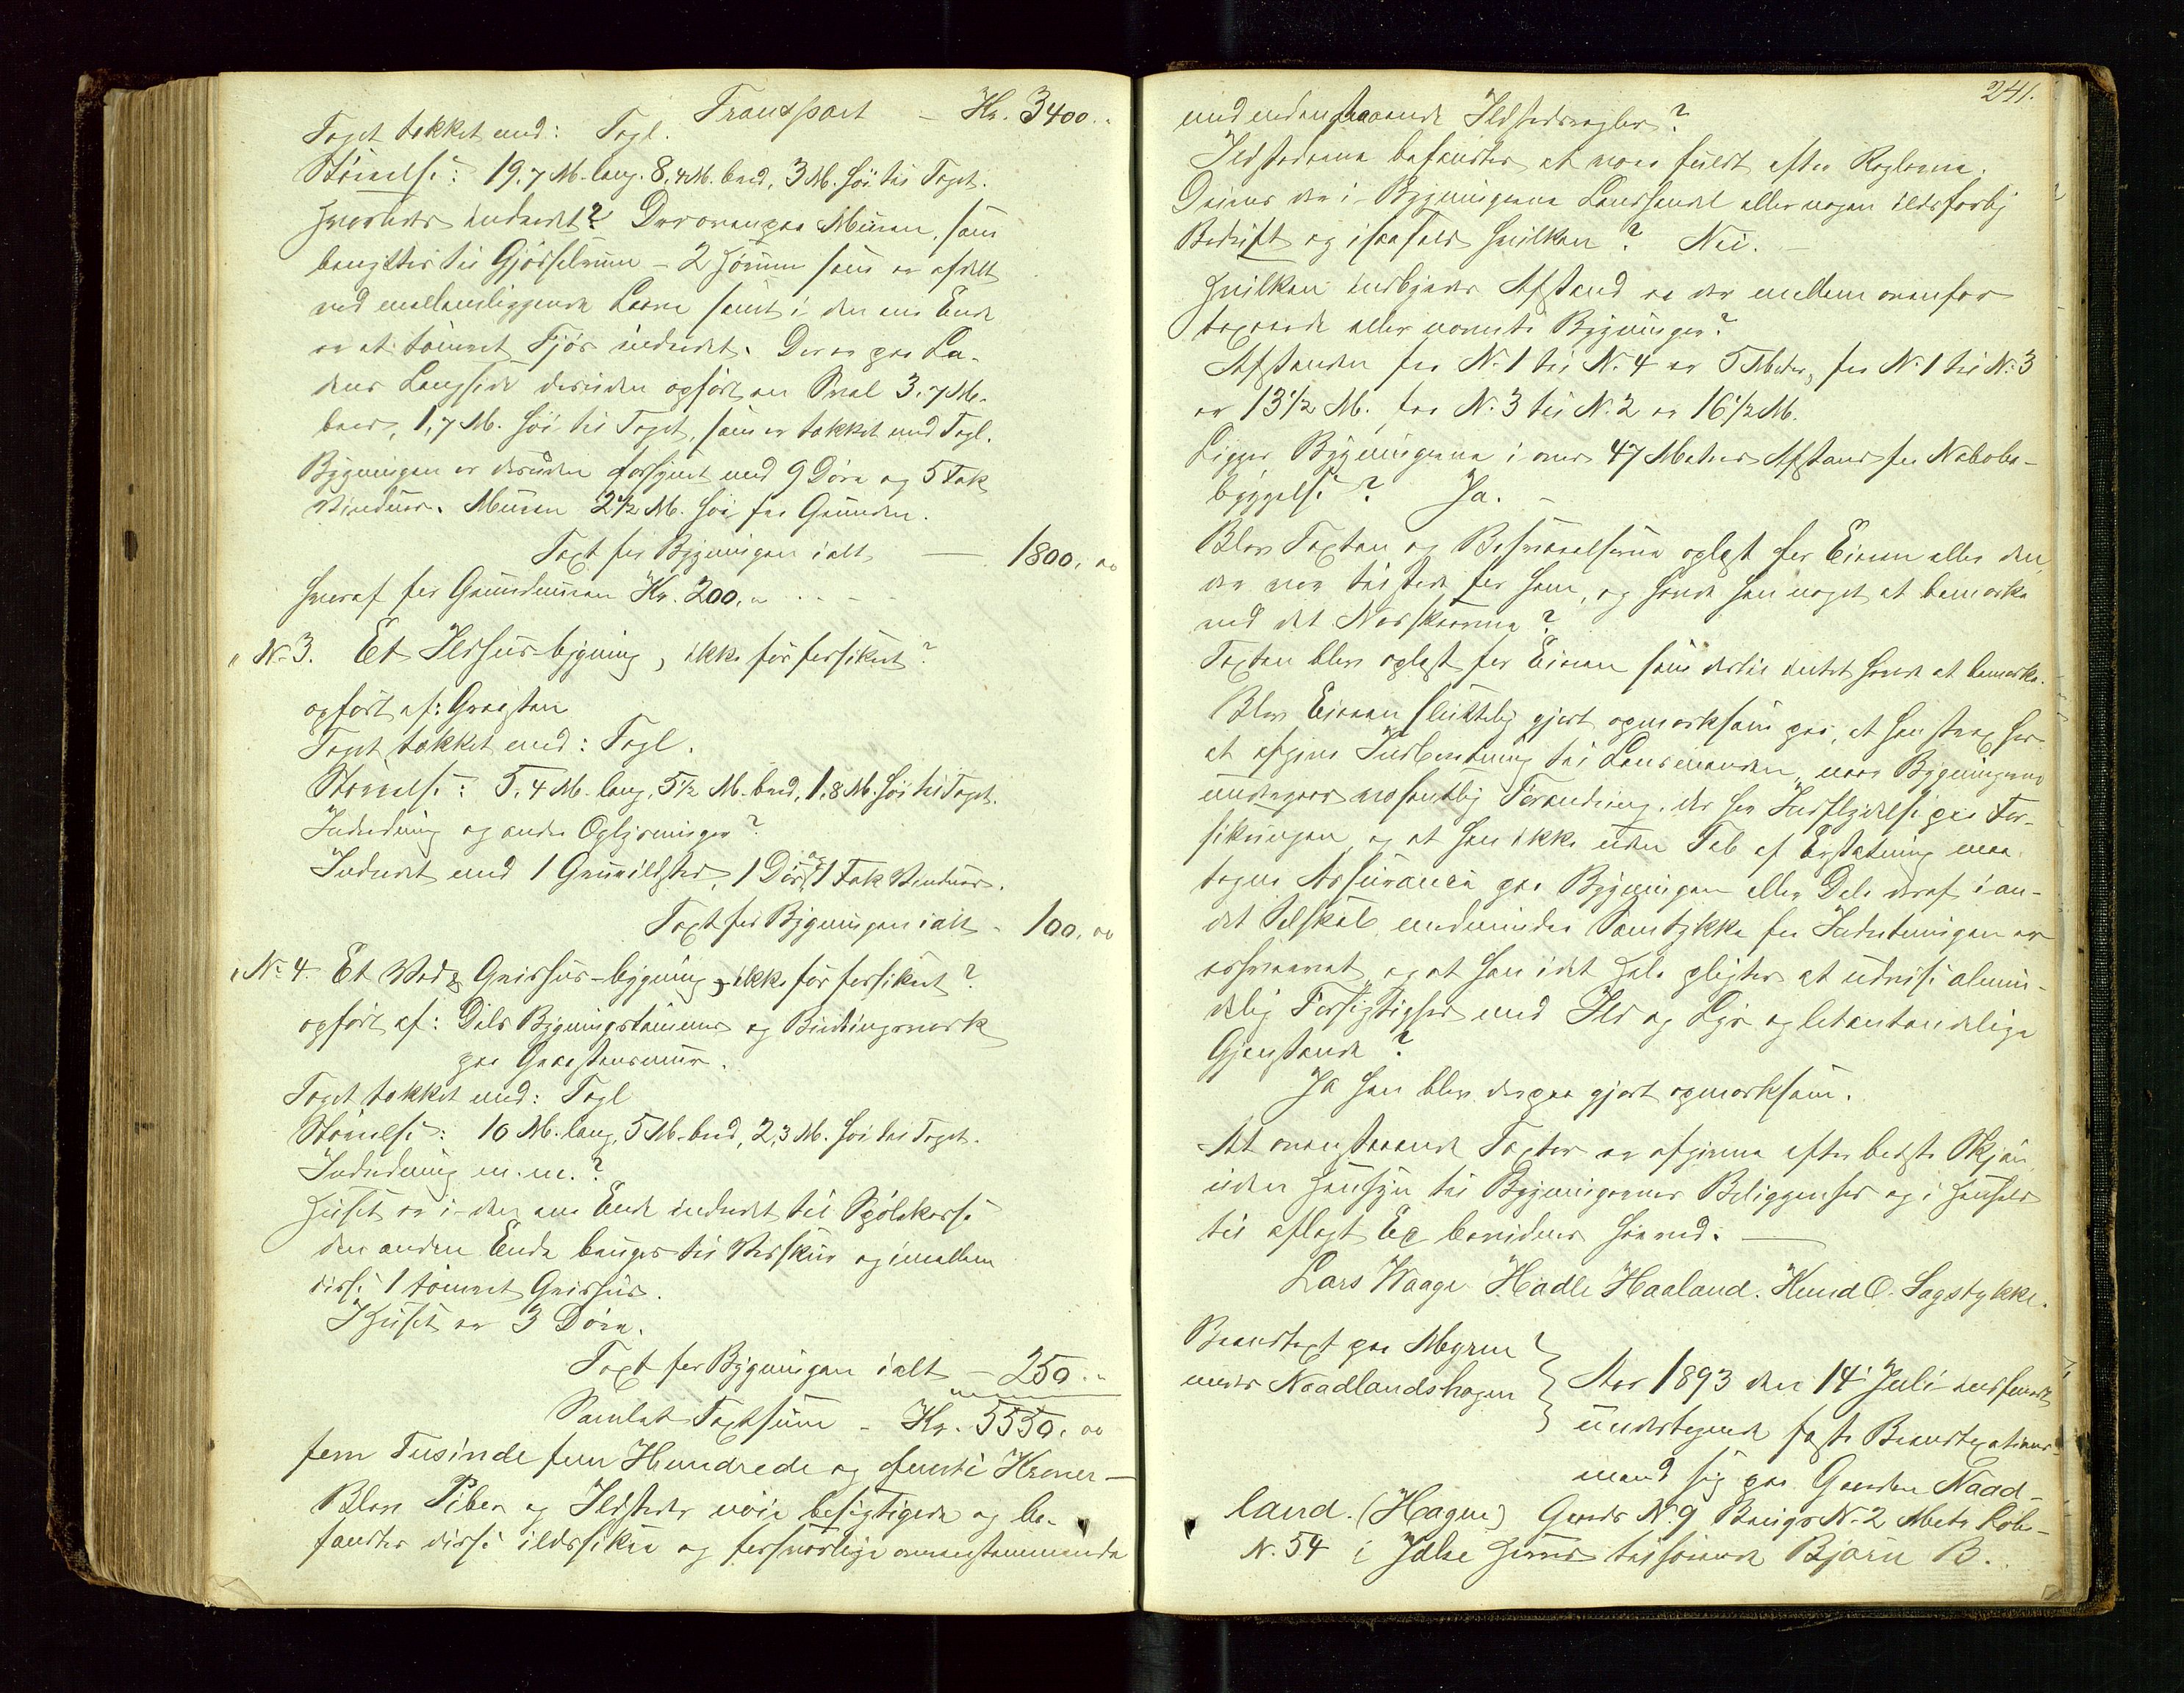 Transport – Kr. 3400..
Taget tækket med: Tagl.
Størrelse: 19,7 M. lang, 8,4 M. bred, 3 M. høi til Taget.
Hvorledes indredet? Der ovenpaa Muren, som
benyttes til Gjødselrum – 2 Hørum som er afdelt
ved mellemliggende Laave samt i den ene Ende
er et tømret Fjøs indredet. Der er paa La-
dens Langside desuden opført en Sval 3,7 M.
bred, 1,7 M. høi til Taget, som er tækket med Tagl.
Bygningen er desuden forsynet med 9 Døre og 5 Fak
Vinduer. Muren 2 1/2 M. høi fra Grunden.
Taxt for Bygningen ialt — 1800, oo
hvoraf for Grundmuren Kr. 200. "
" No 3. Et Ildhus-bygning, ikke før forsikret?
opført af: Graasten
Taget tækket med: Tagl.
Størrelse: 5,4 M. lang, 5 1/2 M. bred, 1,8 M. høi til Taget.
Indredning og andre Oplysninger?
Indredet med 1 Grueildsted, 1 Dør og 1 Fak Vinduer.
Taxt for Bygningen ialt - 100, oo
" No 4. Et Ved & Grishus-bygning, ikke før forsikret?
opført af: Dels Bygningstømmer og Bindingsværk
paa Graastensmur.
Taget tækket med: Tagl
Størrelse: 10 M. lang, 5 M. bred, 2,3 M. høi til Taget.
Indredning m.m.?
Huset er i den ene Ende indredet til
den anden Ende bruges til Vedskur og imellem
disse 1 tømret Grishus.
I Huset er 3 Døre.
Taxt for Bygningen ialt – 250..
Samlet Taxtsum – Kr. 5550, oo
fem Tusinde fem Hundrede og femti Kroner —
Blev Piber og Ildsteder nøie besigtigede og be-
fandtes disse ildsikre og forsvarlige overenstemmende
241.
med nedenstaaende Ildstedsregler?
Ildstederne befandtes at være fuldt efter Reglerne.
Drives der i Bygningerne Landhandel eller nogen ildsfarlig
Bedrift og isaafald hvilken? Nei. –
Hvilken indbyrdes Afstand er der mellem ovenfor
taxerede eller nævnte Bygninger?
Afstanden fra No 1 til No 4 er 5 Meter, fra No 1 til No 3
er 13 1/2 M. fra No 3 til No 2 er 16 1/2 M.
Ligger Bygningerne i over 47 Meters Afstand fra Nabobe-
byggelse? Ja. –
Blev Taxten og Besvarelserne oplæst for Eieren eller den,
der var tilstede for ham, og havde han noget at bemærke
ved det Nedskrevne?
Taxten blev oplæst for Eieren som dertil intet havde at bemærke.
Blev Eieren sluttelig gjort opmærksom paa, at han strax har
at afgive Indberetning til Lensmanden, naar Bygningerne
undergaar væsentlig Forandring, der har Indflydelse paa For-
sikringen, og at han ikke uden Tab af Erstatning maa
tegne Assurance paa Bygningen eller Dele deraf i an-
det Selskab, medmindre Samtykke fra Indretningen er
erhvervet, og at han i det Hele pligter at udvise almin-
delig Forsigtighed med Ild og Lys og letantændelige
Gjenstande?
Ja han blev derpaa gjort opmærksom.
At ovenstaaende Taxter er afgivne efter bedste Skjøn
uden Hensyn til Bygningernes Beliggenhed og i Henhold
til aflagt Ed bevidnes herved. —
Lars Waage Hadle Haaland. Knud O. Sagstykke.
Brandtaxt paa Myren
under Naadlandshagen
Aar 1893 den 14 Juli indfandt
undertegnede faste Brandtaxations-
mænd sig paa Gaarden Naad-
land. (Hagen) Gaards No 9 Brugs No 2 Matr. Løbe-
No. 54 i Jelse Herred tilhørende Bjørn B.